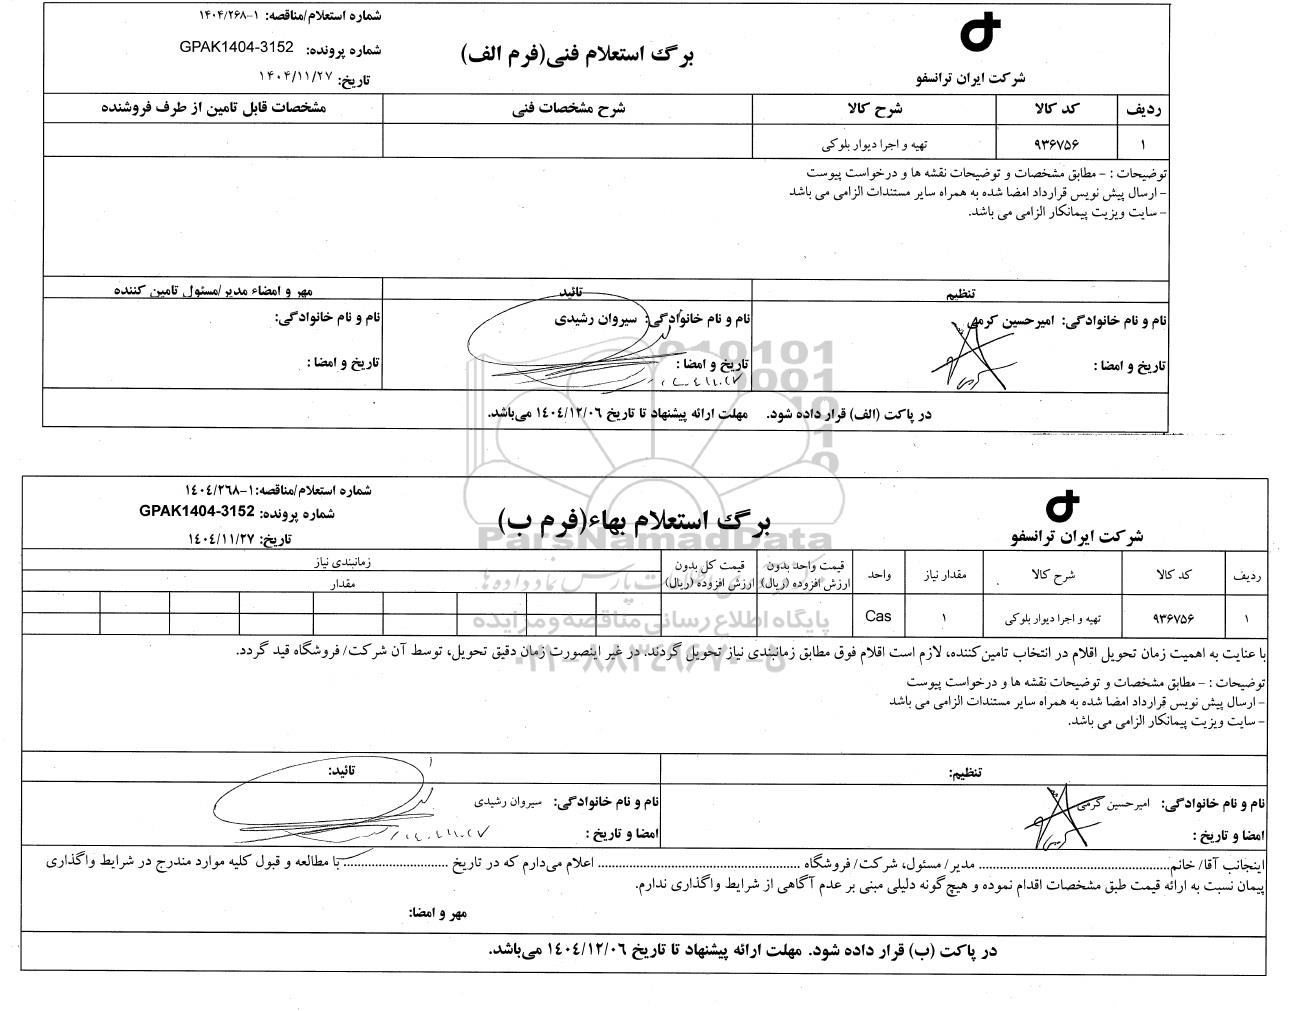 شماره استعلام/مناقصه: ۱-۱۴۰۴/۲۶۸
برگ استعلام فنی(فرم الف)
شماره پرونده: GPAK1404-3152
شرکت ایران ترانسفو
تاریخ: ۱۴۰۴/۱۱/۲۷
ردیف کد کالا شرح کالا شرح مشخصات فنی مشخصات قابل تامین از طرف فروشنده
۱ ۹۳۶۷۵۶ تهیه و اجرا دیوار بلوکی
توضیحات : - مطابق مشخصات و توضیحات نقشه ها و درخواست پیوست
- ارسال پیش نویس قرارداد امضا شده به همراه سایر مستندات الزامی می باشد
- سایت ویزیت پیمانکار الزامی می باشد.
تنظیم تائید مهر و امضاء مدیر/مسئول تامین کننده
نام و نام خانوادگی: امیرحسین کرمی نام و نام خانوادگی: سیروان رشیدی نام و نام خانوادگی:
تاریخ و امضا : تاریخ و امضا : تاریخ و امضا :
در پاکت (الف) قرار داده شود. مهلت ارائه پیشنهاد تا تاریخ ۱۴۰۴/۱۲/۰۶ می‌باشد.
شماره استعلام/مناقصه:۱-۱۴۰۴/۲۶۸
برگ استعلام بهاء(فرم ب)
شماره پرونده: GPAK1404-3152
شرکت ایران ترانسفو
تاریخ: ۱۴۰۴/۱۱/۲۷
ParsNamadData
ردیف کد کالا شرح کالا مقدار نیاز واحد قیمت واحد بدون ارزش افزوده (ریال) قیمت کل بدون ارزش افزوده (ریال) زمانبندی نیاز
مقدار
۱ ۹۳۶۷۵۶ تهیه و اجرا دیوار بلوکی ۱ Cas
پایگاه اطلاع رسانی مناقصه و مزایده
با عنایت به اهمیت زمان تحویل اقلام در انتخاب تامین‌کننده، لازم است اقلام فوق مطابق زمانبندی نیاز تحویل گردند. در غیر اینصورت زمان دقیق تحویل، توسط آن شرکت/ فروشگاه قید گردد.
۰۲۱-۸۸۳۴۹۶۷۰-۵
توضیحات : - مطابق مشخصات و توضیحات نقشه ها و درخواست پیوست
- ارسال پیش نویس قرارداد امضا شده به همراه سایر مستندات الزامی می باشد
- سایت ویزیت پیمانکار الزامی می باشد.
تنظیم: تائید:
نام و نام خانوادگی: امیرحسین کرمی نام و نام خانوادگی: سیروان رشیدی
امضا و تاریخ : امضا و تاریخ :
اینجانب آقا/ خانم............ مدیر/ مسئول، شرکت/ فروشگاه ............ اعلام می‌دارم که در تاریخ ............ با مطالعه و قبول کلیه موارد مندرج در شرایط واگذاری
پیمان نسبت به ارائه قیمت طبق مشخصات اقدام نموده و هیچ‌گونه دلیلی مبنی بر عدم آگاهی از شرایط واگذاری ندارم.
مهر و امضا:
در پاکت (ب) قرار داده شود. مهلت ارائه پیشنهاد تا تاریخ ۱۴۰۴/۱۲/۰۶ می‌باشد.